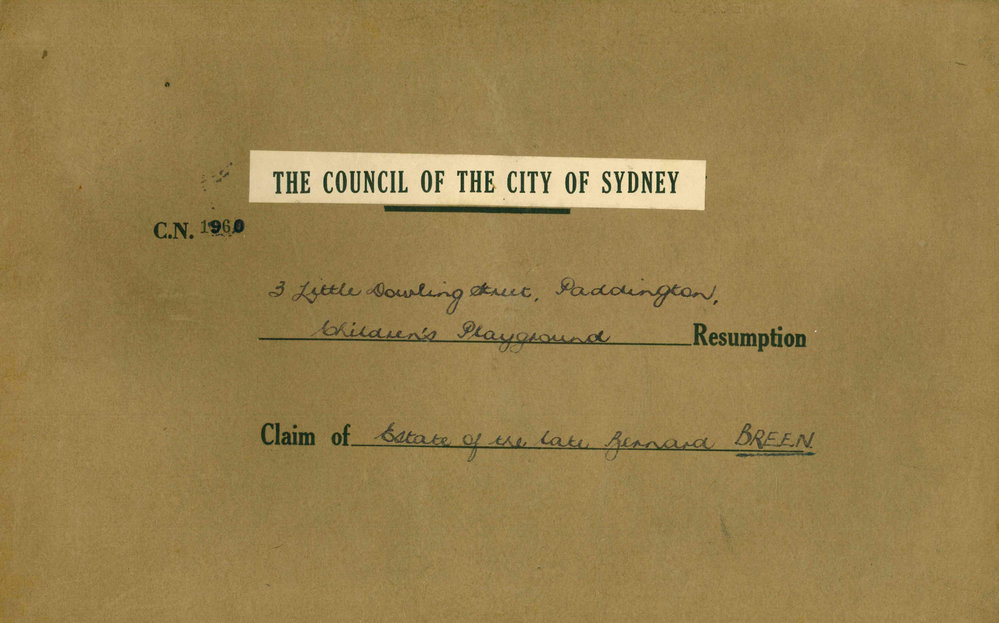 THE COUNCIL OF THE CITY OF SYDNEY
C.N. 1960
3 Little Dowling Street, Paddington,
Children's Playground Resumption
Claim of Estate of the late Bernard BREEN